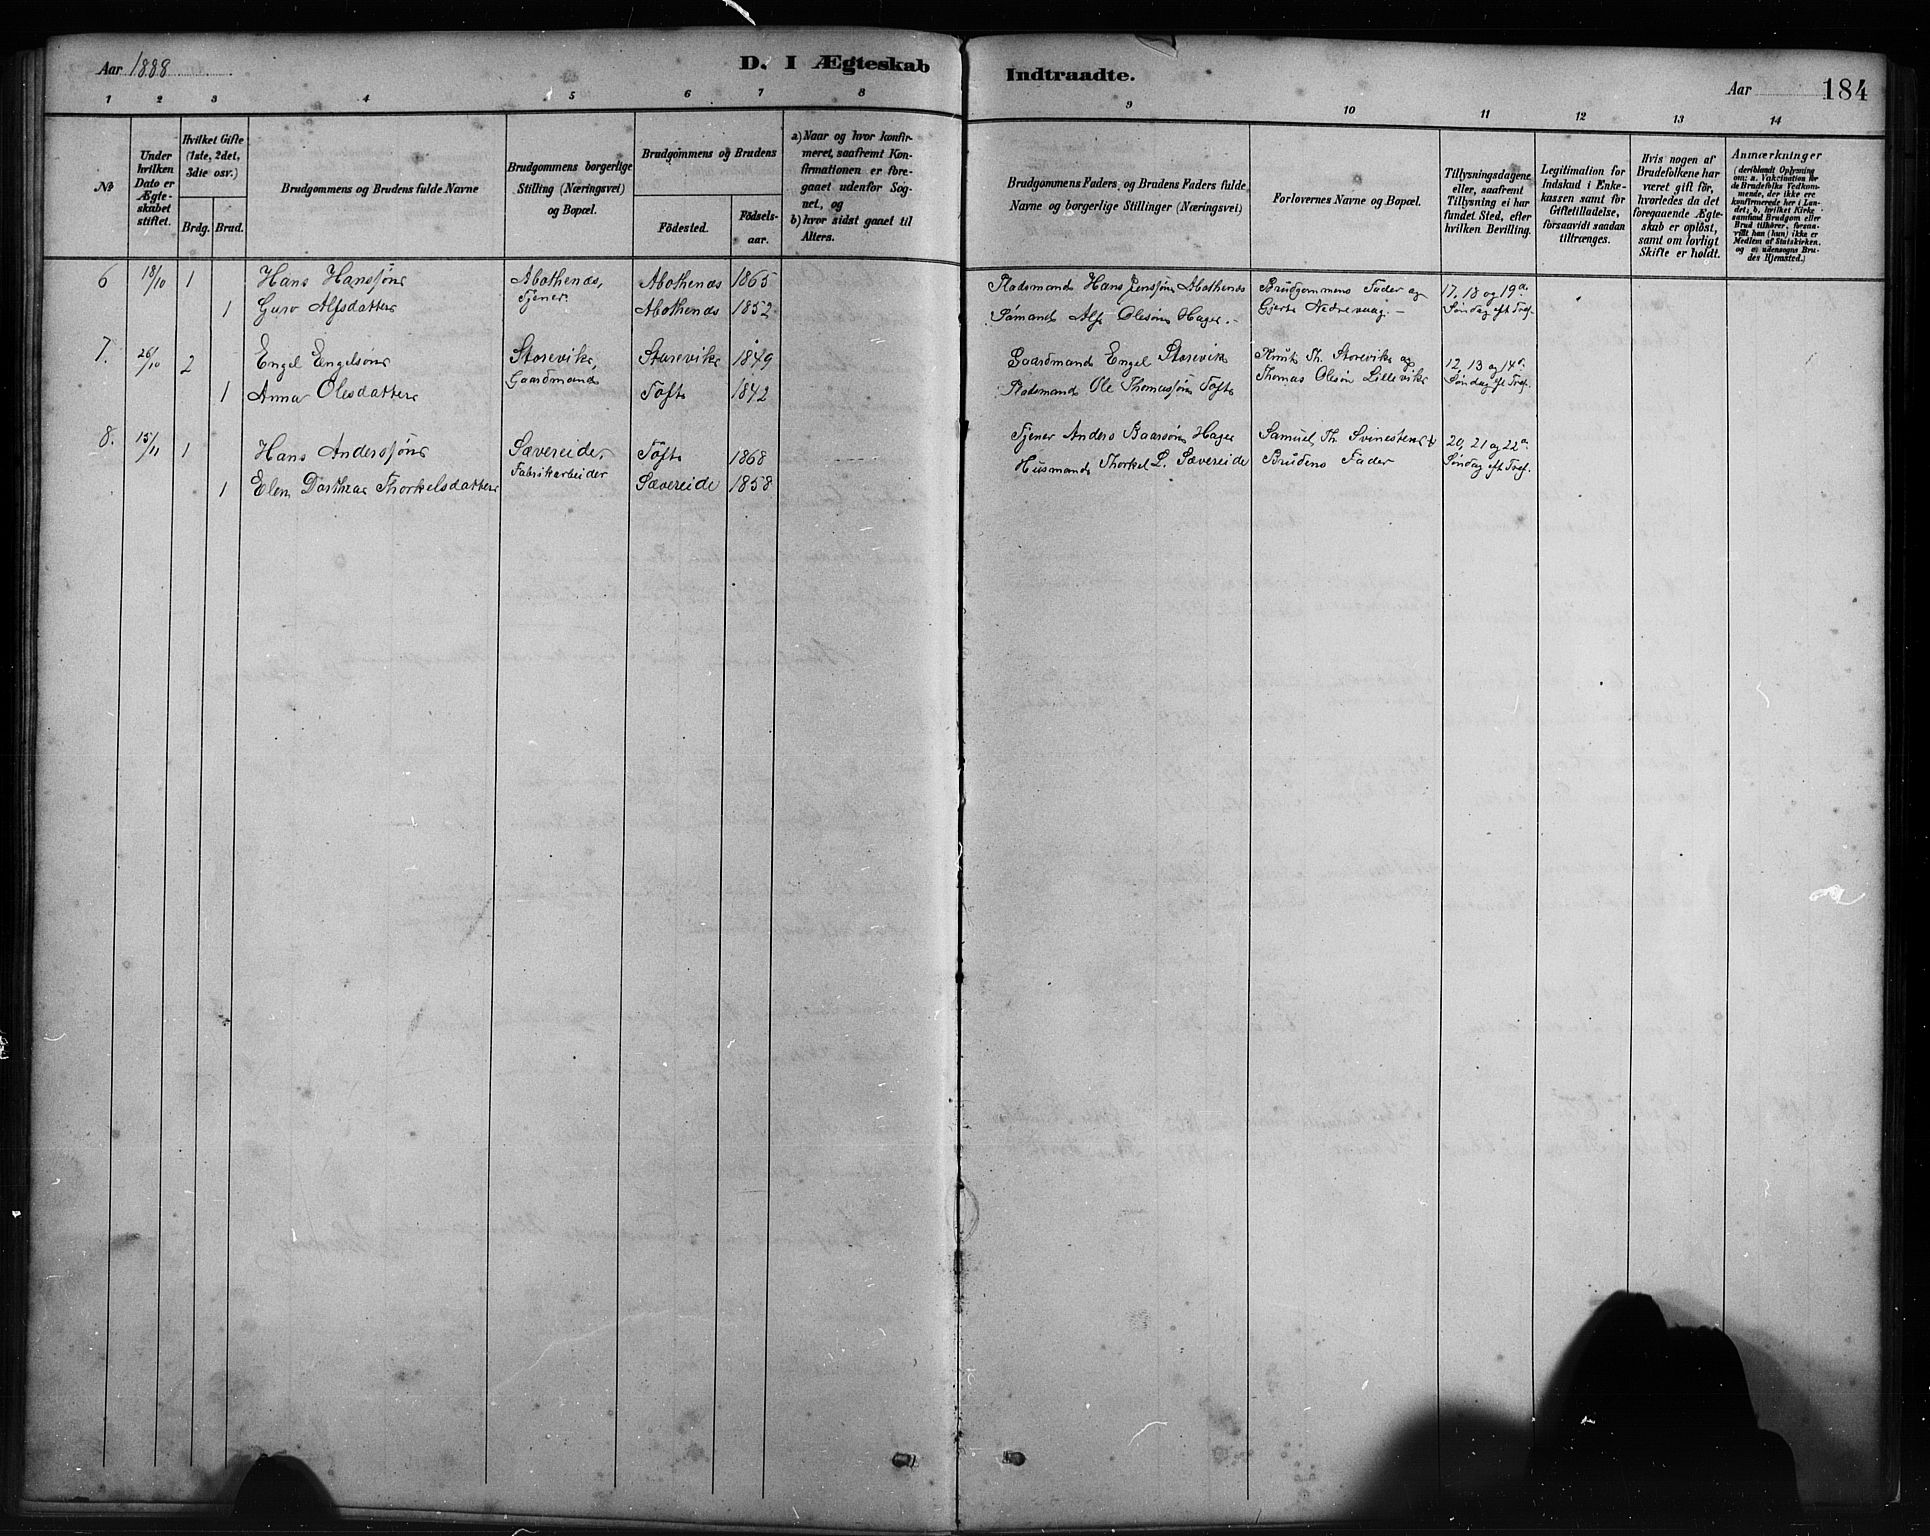 Aar 1888
D. I Ægteskab Indtraadte.
Aar
184
1 2 3 4 5 6 7 8 9 10 11 12 13 14
No
Under hvilken Dato er Ægteskabet stiftet.
Hvilket Gifte (1ste, 2det, 3die osv.)
Brdg. Brud.
Brudgommens og Brudens fulde Navne
Brudgommens borgerlige Stilling (Næringsvei) og Bopæl.
Brudgommens og Brudens
Födested.
Födselsaar.
a) Naar og hvor konfirmeret, saafremt Konfirmationen er foregaaet udenfor Sognet, og
b) hvor sidst gaaet til Alters.
Brudgommens Faders, og Brudens Faders fulde Navne og borgerlige Stillinger (Næringsvei)
Forlovernes Navne og Bopæl.
Tillysningsdagene eller, saafremt Tillysning ei har fundet Sted, efter hvilken Bevilling.
Legitimation for Indskud i Enkekassen samt för Giftetilladelse, forsaavidt saadan tiltrænges.
Hvis nogen af Brudefolkene har været gift för, hvorledes da det foregaaende Ægteskab er oplöst, samt om lovligt Skifte er holdt.
Anmærkninger (deriblandt Oplysning om: a. Vakcination for de Brudefolks Vedkommende, der ikke ere konfirmerede her i Landet; b. hvilket Kirkesamfund Brudgom eller Brud tilhörer, forsaavidt han (hun) ikke er Medlem af Statskirken, og c. udensogns Brudes Hjemsted.)
6 18/10 1 Hans Hanssøn Abothenæs, Abothenæs 1865 Pladsmand Hans Jenssøn Abothenæs Brudgommens Fader og 17, 18 og 19de
Tjener.
1 Guro Alfsdatter Abothenæs 1852 Sømand Alf Olesøn Hager. Gjert Nedrevaag. Søndag eft Tref.
7. 26/10 2 Engel Engelsøn Storevik, Storevik 1849 Gaardmand Engel Storevik Knut Th. Storevik og 12, 13 og 14de
Gaardmand
1 Anna Olesdatter Toft 1842 Pladsmand Ole Thomassøn Toft Thomas Olesøn Lillevik Søndag eft Tref.
8. 15/11 1 Hans Anderssøn Sævereide, Toft 1868 Tjener Anders Baarsøn Hager Samuel Th. Svinesten 20, 21 og 22de
Fabrikarbeider
1 Elen Dorthea Thorkelsdatter Sævereide 1858 Husmand Thorkel L. Sævereide Brudens Fader Søndag eft Tref.